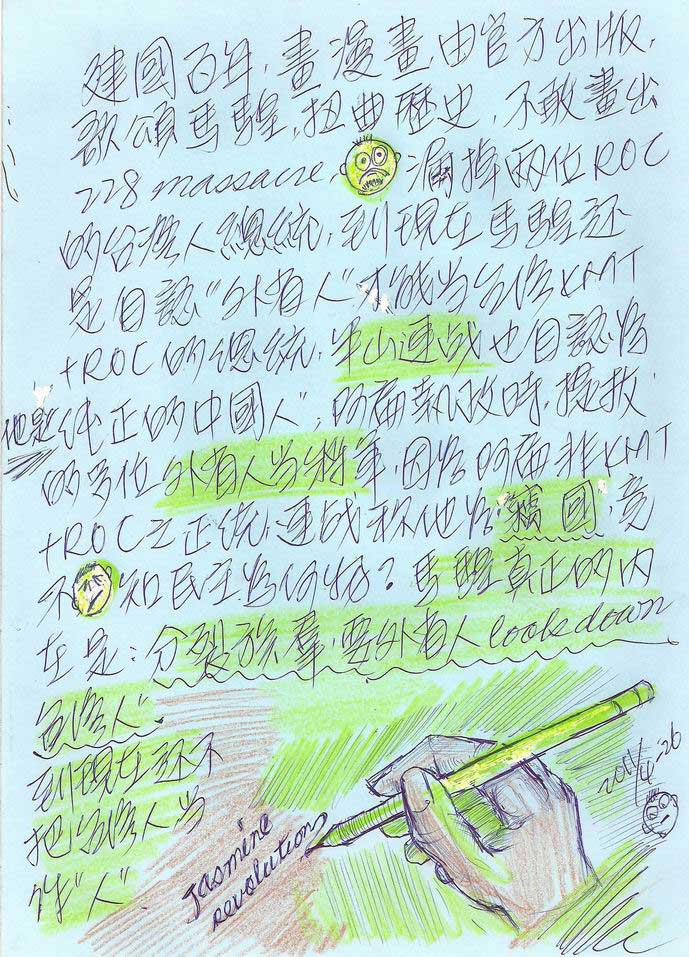 建國百年,畫漫畫,由官方出版,
歌頌馬騜,扭曲歷史,不敢畫出
228 massacre, 漏掉兩位ROC
的台灣人總統,到現在馬騜还
是自認"外省人"才能当台湾KMT
+ROC的總統,半山連战也自認为
他是"純正的中國人",阿扁執政時,提拔
的多位外省人当將軍,因为阿扁非KMT
+ROC之正统,連战称他为竊國,竟
不知民主为何物?馬騜真正的内
在是:分裂族羣,要外省人look down
台湾人"
到現在还不
把台湾人当
作"人"
Jasmine
revolution
2011/4-26